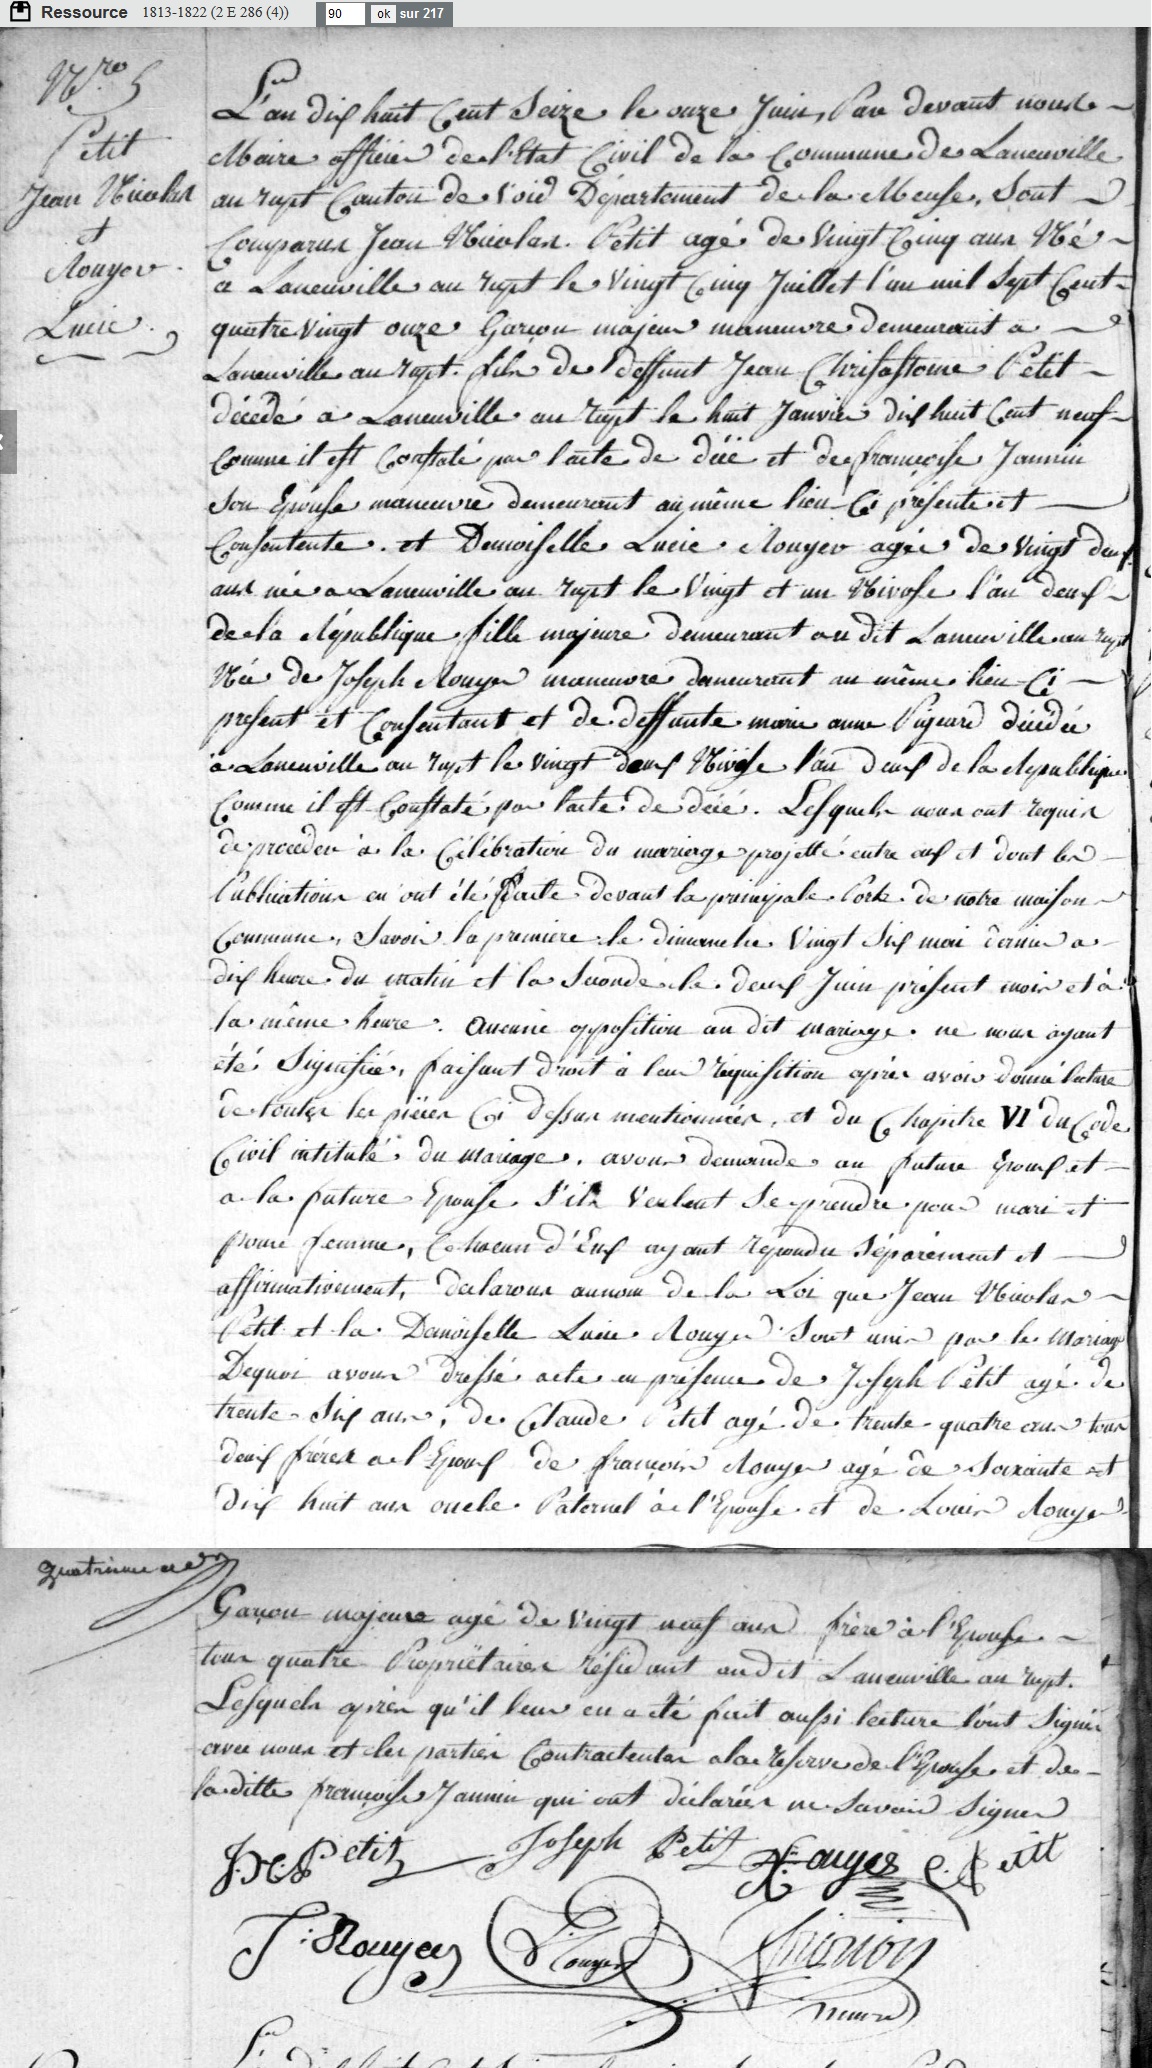 Ressource 1813-1822 (2 E 286 (4)) 90 ok sur 217
Nro 5
Petit
Jean Nicolas
et
Rouyer
Lucie
L'an dix huit Cent Seize le onze Juin, Par devant nous
Maire officier de l'Etat Civil de la Commune de Laneuville
au rupt Canton de Void Département de la Meuse, Sont
Comparus Jean Nicolas Petit agé de Vingt Cinq ans Né
a Laneuville au rupt le Vingt Cinq Juillet l'an mil Sept Cent
quatre Vingt onze Garçon majeur manuvre demeurant a
Laneuville au rupt. fils de deffunt Jean Chrisostome Petit
décédé a Laneuville au rupt le huit Janvier dix huit Cent neuf
Comme il est Constaté par l'acte de décé et de françoise Jannin
Son Epouse manuvre demeurant au même lieu Ci présente et
Consentente. et Demoiselle Lucie Rouyer agée de Vingt deux
ans née a Laneuville au rupt le Vingt et un Nivose l'an deux
de la République fille majeure demeurant au dit Laneuville au rupt
Née de Joseph Rouyer manuvre demeurant au même lieu Ci
present et Consentant et de deffunte marie anne Pigeard décédée
a Laneuville au rupt le Vingt deux Nivose l'an deux de la République
Comme il est Constaté par l'acte de décé. Lesquels nous ont requis
de proceder à la Célébration du mariage projetté entre eux et dont les
Publications en ont été faite devant la principale Porte de notre maison
Commune, Savoir la premiere le dimanche Vingt Six mai dernier a
dix heure du matin et la Seconde le deux Juin présent mois et à
la même heure. Aucune opposition au dit mariage ne nous ayant
été Signifiée, faisant droit à leur réquisition après avoir donné lecture
de toutes les pièces Ci dessus mentionnées, et du Chapitre VI du Code
Civil intitulé du mariage. avons demande au future Epoux et
a la future Epouse S'ils Veulent Se prendre pour mari et
pour femme, Chacun d'Eux ayant repondu Séparément et
affirmativement, declarons au nom de la Loi que Jean Nicolas
Petit et la Demoiselle Lucie Rouyer Sont unis par le Mariage
Dequoi avons dressé acte en présence de Joseph Petit agé de
trente Six ans, de Claude Petit agé de trente quatre ans tous
deux fréres a l'Epoux de françois Rouyer agé de Soixante et
dix huit ans oncle Paternel à l'Epouse et de Louis Rouyer
Garçon majeure agé de Vingt neuf ans frère à l'Epouse
tous quatre Propriètaires résidant audit Laneuville au rupt.
Lesquels après qu'il leur en a été fait aussi lecture l'ont Signé
avec nous et les parties Contractentes a la reserve de l'Epouse et de
la ditte françoise Jannin qui ont déclarées ne Savoir Signer
J. N. Petit Joseph Petit Rouyer C. Petit
J. Rouyer L. Rouyer